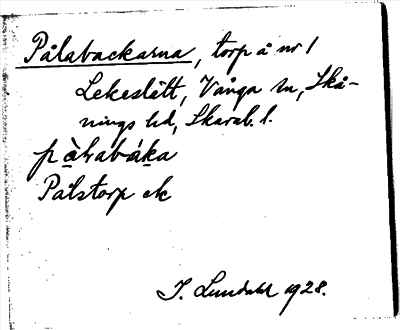 Pålabackarna, torp å nr 1
Lekeslätt, Vånga sn, Skå-
nings hd, Skarab. l.
Pålstorp ek
I. Lundahl 1928.